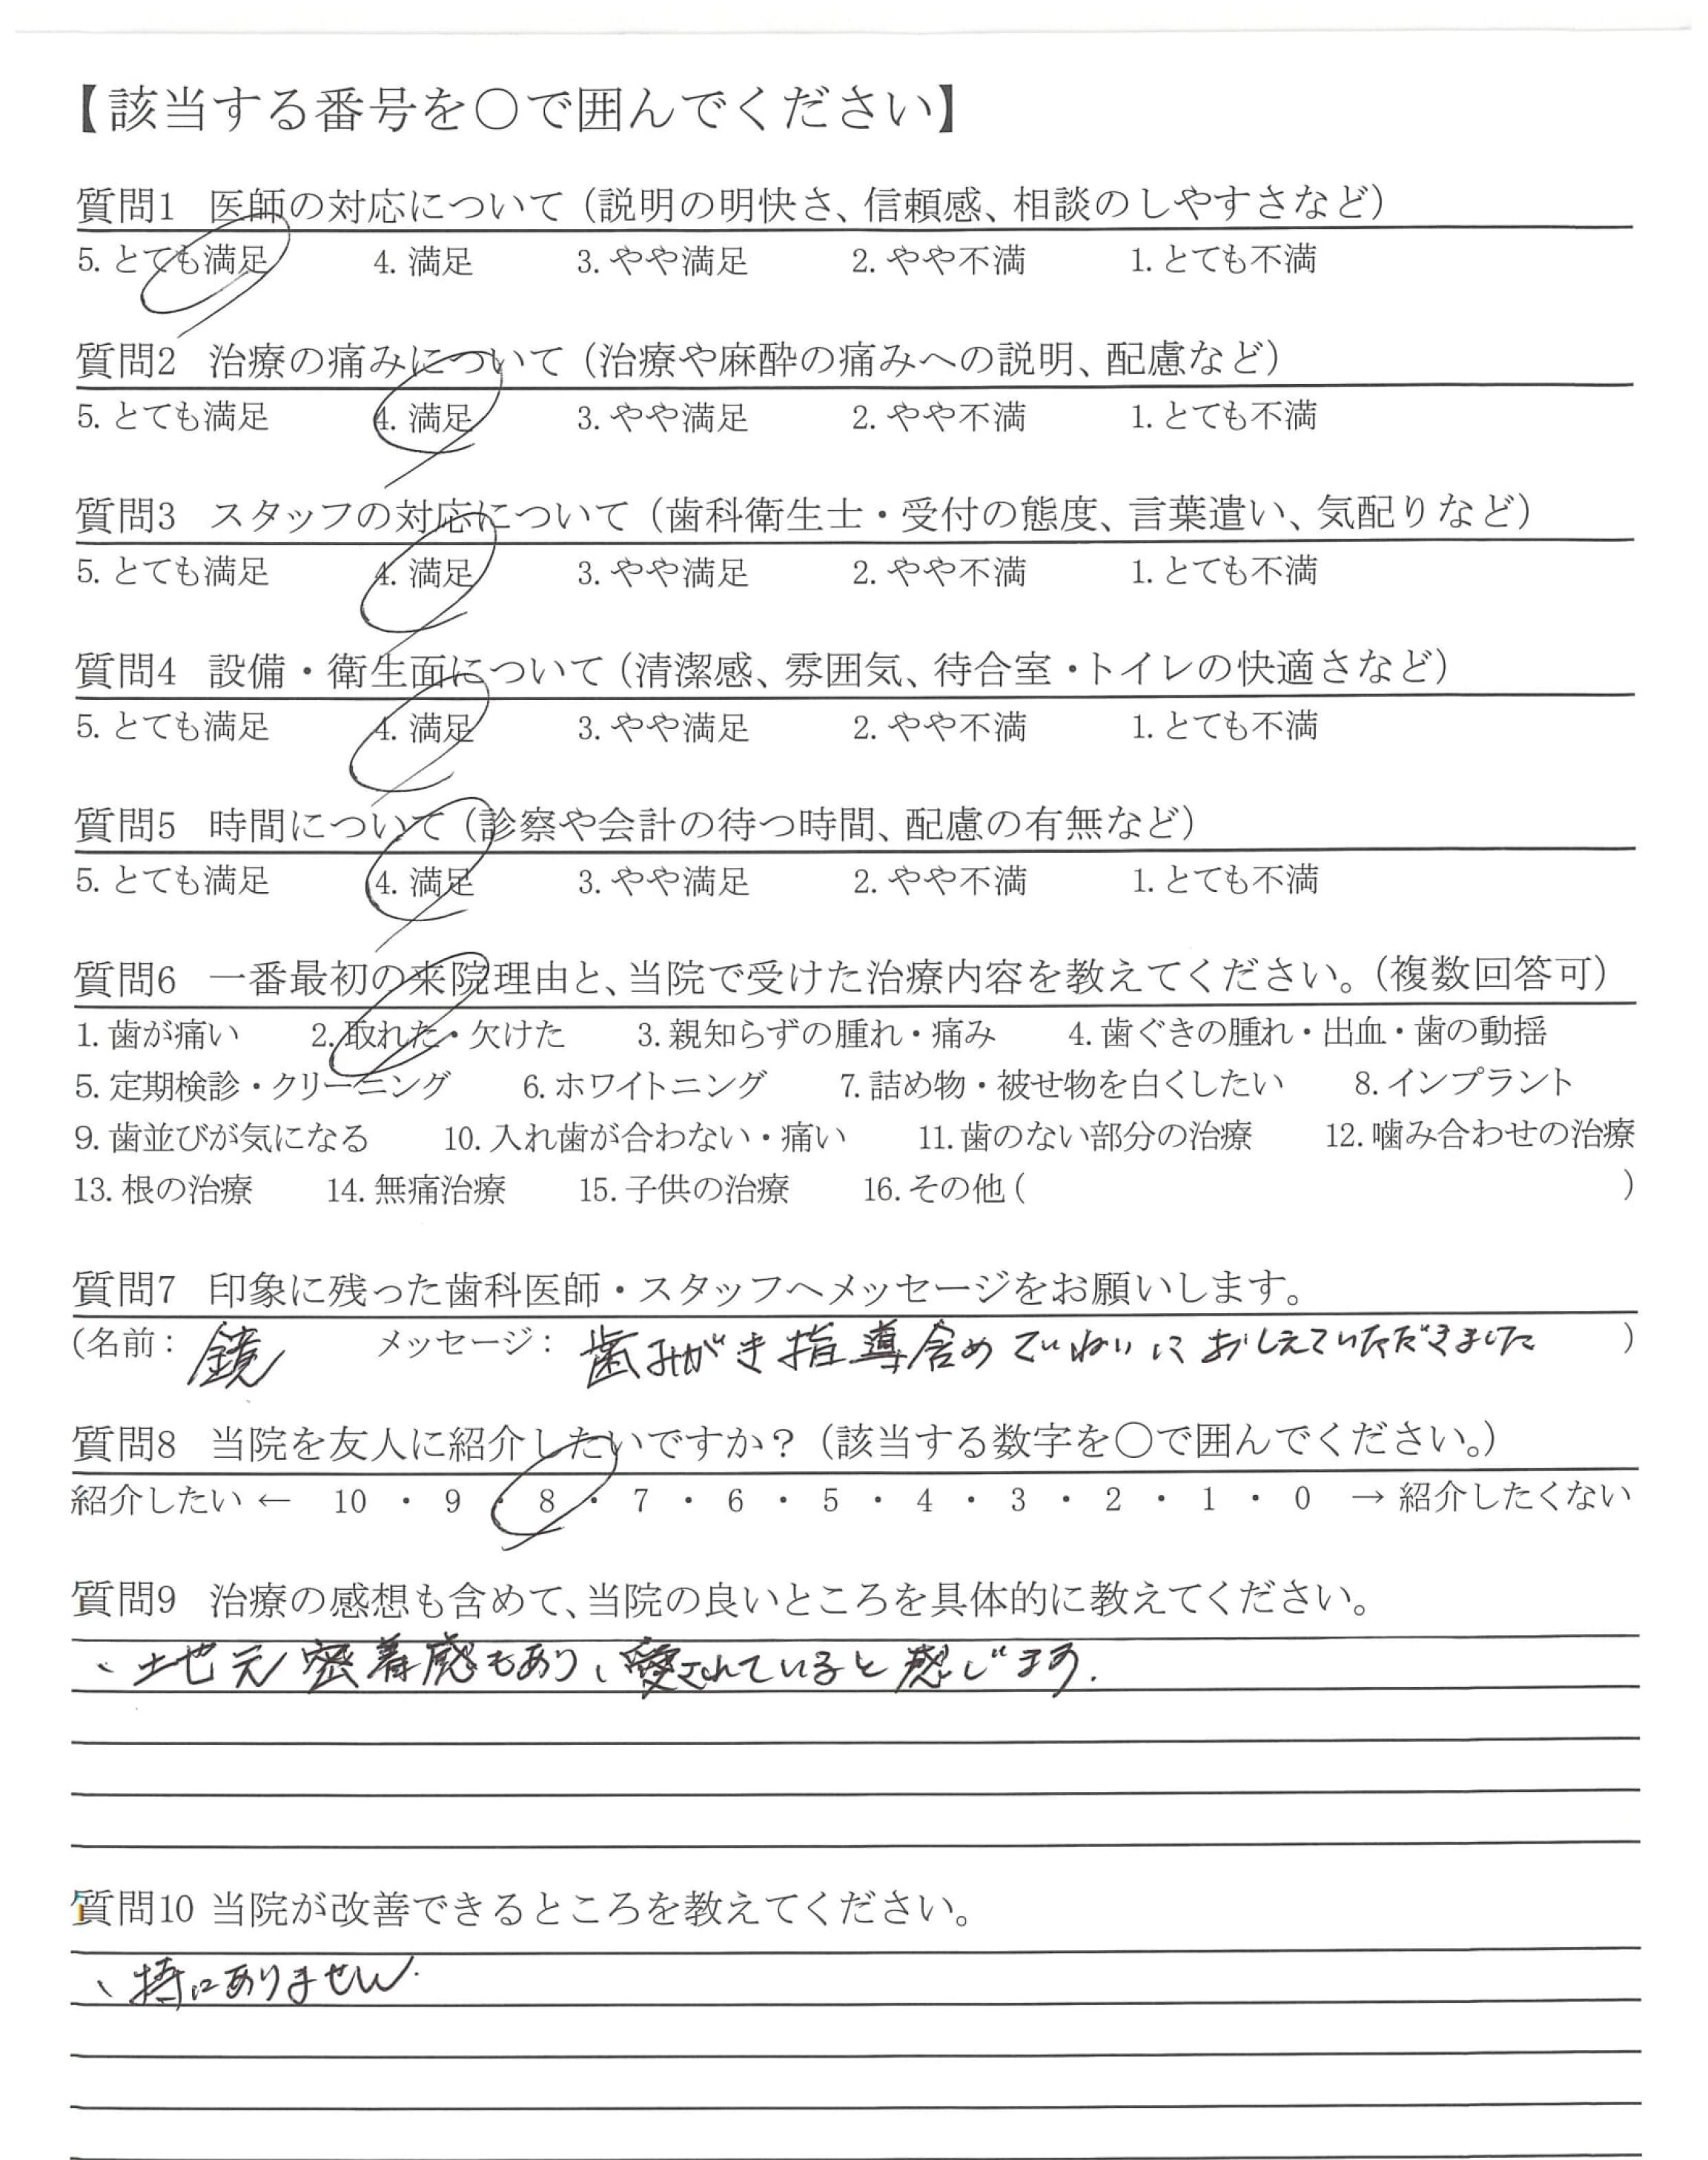 【該当する番号を○で囲んでください】
質問1 医師の対応について（説明の明快さ、信頼感、相談のしやすさなど）
5. とても満足 4. 満足 3. やや満足 2. やや不満 1. とても不満
質問2 治療の痛みについて（治療や麻酔の痛みへの説明、配慮など）
5. とても満足 4. 満足 3. やや満足 2. やや不満 1. とても不満
質問3 スタッフの対応について（歯科衛生士・受付の態度、言葉遣い、気配りなど）
5. とても満足 4. 満足 3. やや満足 2. やや不満 1. とても不満
質問4 設備・衛生面について（清潔感、雰囲気、待合室・トイレの快適さなど）
5. とても満足 4. 満足 3. やや満足 2. やや不満 1. とても不満
質問5 時間について（診察や会計の待つ時間、配慮の有無など）
5. とても満足 4. 満足 3. やや満足 2. やや不満 1. とても不満
質問6 一番最初の来院理由と、当院で受けた治療内容を教えてください。（複数回答可）
1. 歯が痛い 2. 取れた・欠けた 3. 親知らずの腫れ・痛み 4. 歯ぐきの腫れ・出血・歯の動揺
5. 定期検診・クリーニング 6. ホワイトニング 7. 詰め物・被せ物を白くしたい 8. インプラント
9. 歯並びが気になる 10. 入れ歯が合わない・痛い 11. 歯のない部分の治療 12. 噛み合わせの治療
13. 根の治療 14. 無痛治療 15. 子供の治療 16. その他（ ）
質問7 印象に残った歯科医師・スタッフへメッセージをお願いします。
（名前： 鏡 メッセージ： 歯みがき指導含めていねいにおしえていただきました ）
質問8 当院を友人に紹介したいですか？（該当する数字を○で囲んでください。）
紹介したい ← 10 ・ 9 ・ 8 ・ 7 ・ 6 ・ 5 ・ 4 ・ 3 ・ 2 ・ 1 ・ 0 → 紹介したくない
質問9 治療の感想も含めて、当院の良いところを具体的に教えてください。
、地元密着感もあり、愛されていると感じます．
質問10 当院が改善できるところを教えてください。
、特にありません．